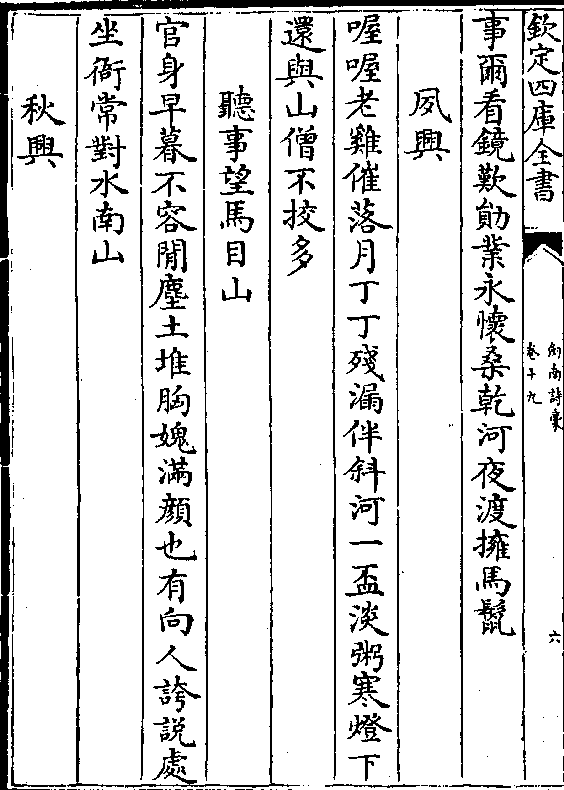 欽定四庫全書
劍南詩藁
卷十九
六
事爾看鏡歎勛業永懷桑乾河夜渡擁馬鬛
夙興
喔喔老雞催落月丁丁殘漏伴斜河一盃淡粥寒燈下
還與山僧不挍多
聽事望馬目山
官身早暮不容閒塵土堆胸媿滿顔也有向人誇説處
坐衙常對水南山
秋興